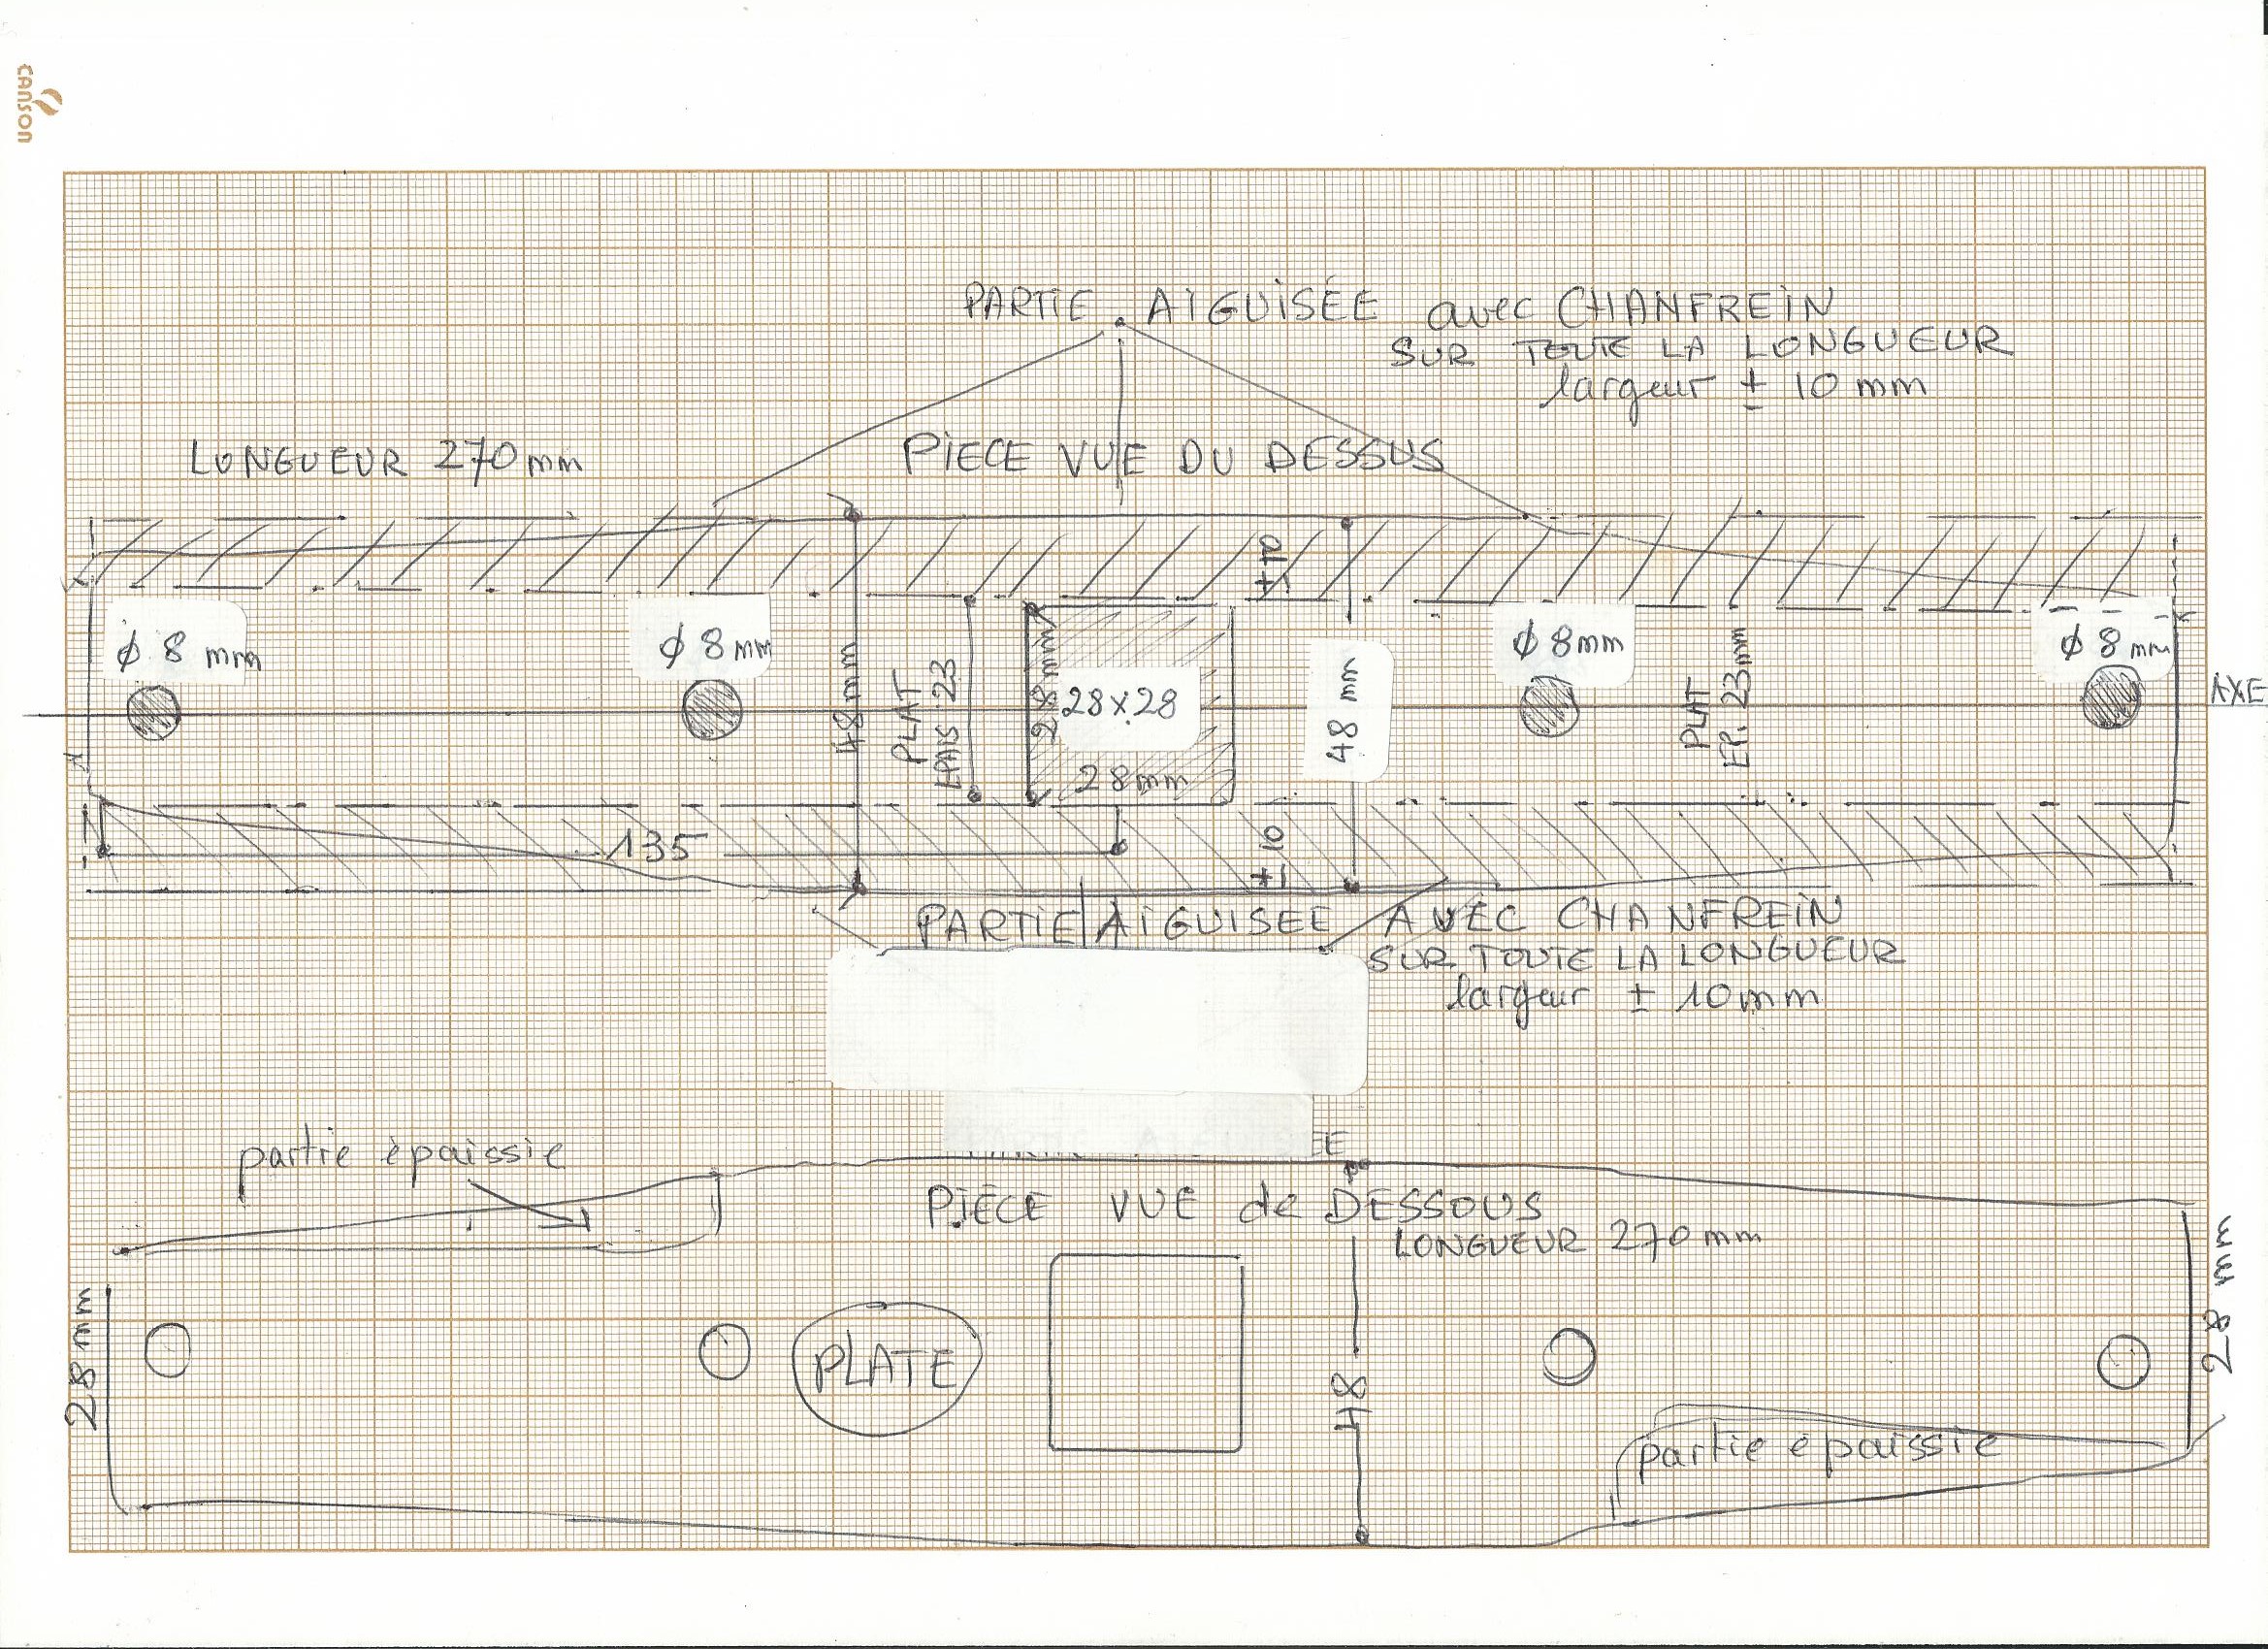 CANSON
PARTIE AIGUISÉE avec CHANFREIN
SUR TOUTE LA LONGUEUR
largeur ± 10 mm
LONGUEUR 270 mm
PIECE VUE DU DESSUS
± 10
ϕ 8 mm
ϕ 8 mm
ϕ 8 mm
ϕ 8 mm
48 mm
PLAT
EPAIS 23
28 mm
28 x 28
28 mm
48 mm
PLAT
EP. 23 mm
AXE
135
± 10
PARTIE AIGUISEE AVEC CHANFREIN
SUR TOUTE LA LONGUEUR
largeur ± 10 mm
partie épaissie
PIÈCE VUE de DESSOUS
LONGUEUR 270 mm
28 mm
PLATE
48
28 mm
partie épaissie